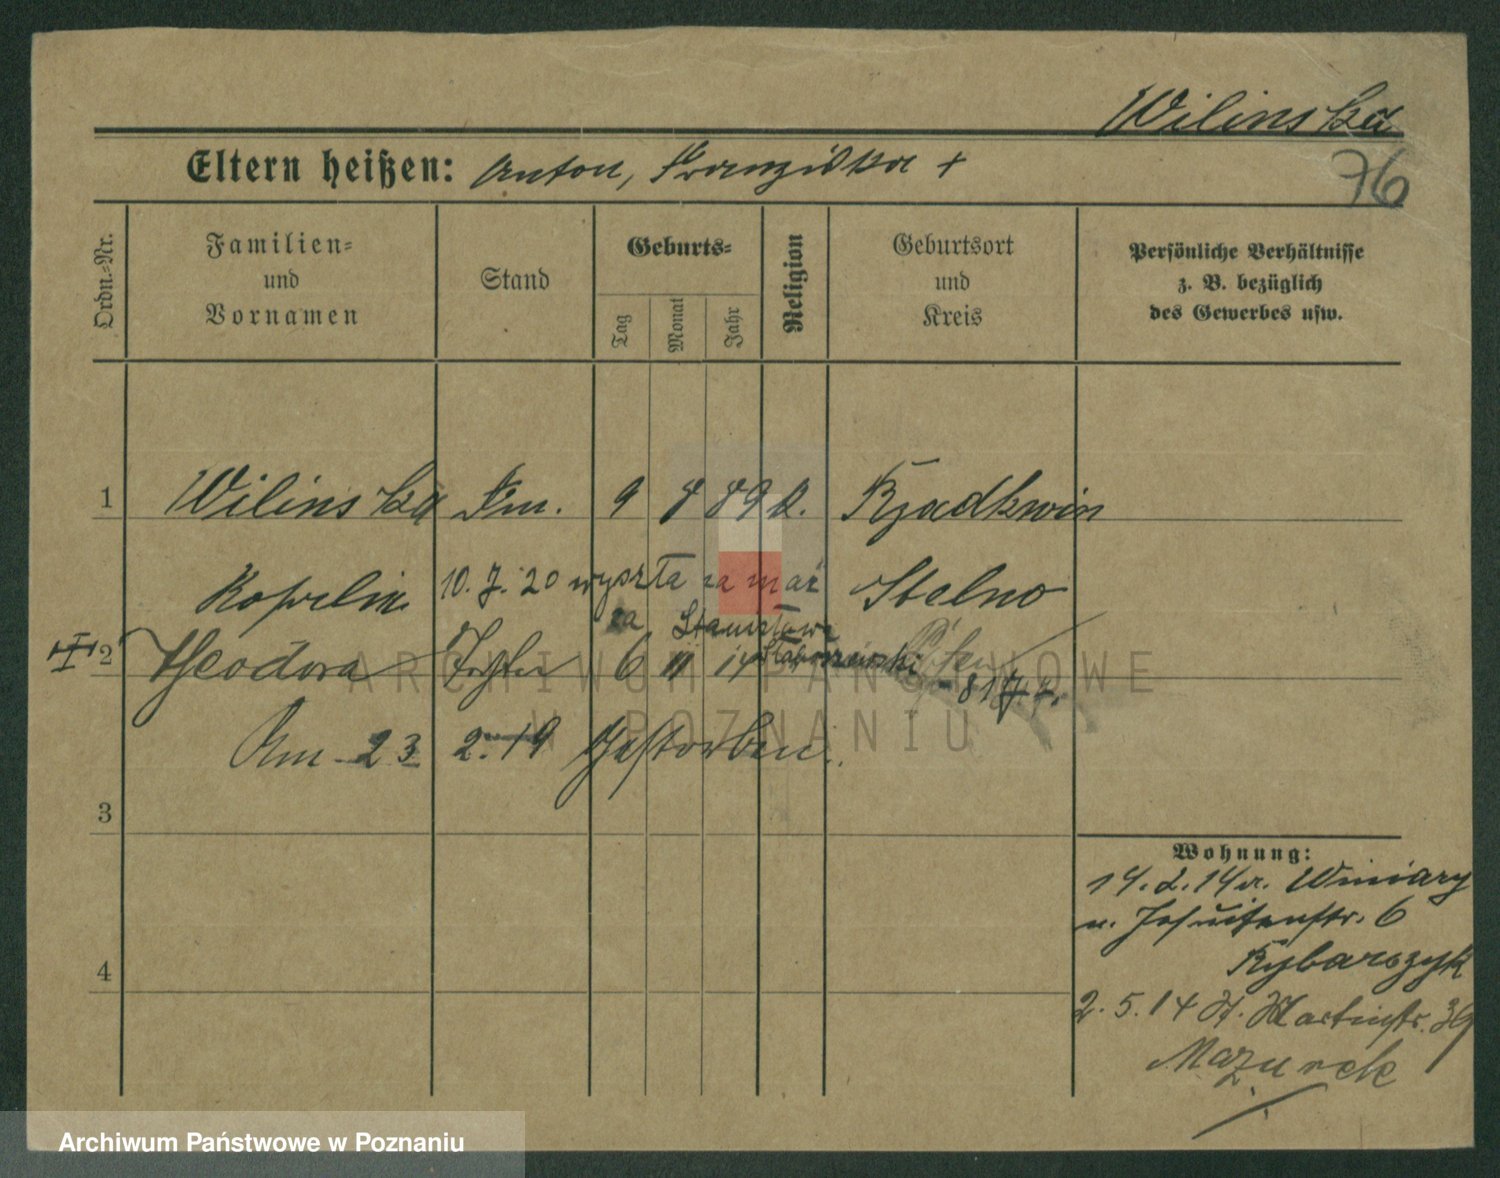 Wilinska
76
Eltern heißen: Anton, Franziska +
Ordn.-Nr.
Familien-
und
Vornamen
Stand
Geburts-
Tag
Monat
Jahr
Religion
Geburtsort
und
Kreis
Persönliche Verhältnisse
z. B. bezüglich
des Gewerbes usw.
1 Wilinska 9 8 89 k. Rzadkwin
10. 7. 20 wyszła za mąż Stelno
za Stanisława
2 Theodora Tochter 6 11 14 Posen
817
Am 23 2. 19 Gestorben.
3
4
Wohnung:
14. 2. 14 Winiary
n. Jesuitenstr. 6
Rybarszyk
2. 5. 14 St. Martinstr. 39
Mazurek
ARCHIWUM PAŃSTWOWE
W POZNANIU
Archiwum Państwowe w Poznaniu